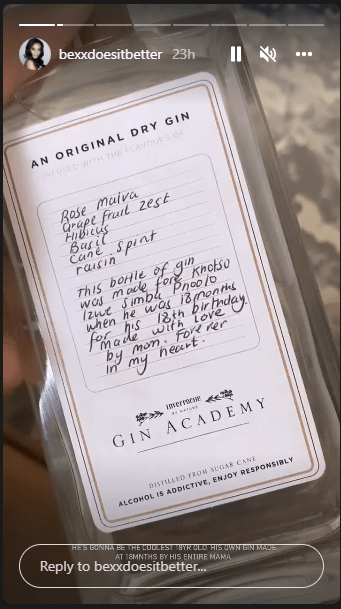 bexxdoesitbetter 23h
AN ORIGINAL DRY GIN
INFUSED WITH THE FLAVOURS OF
Rose malva
Grape Fruit zest
Hibicus
Basil
Cane spirit
raisin
This bottle of gin
was made fore Khotso
Izwe Simba Phoolo
when he was 18months
for his 18th birthday
made with love
by mom. Forever
in my heart.
inverroche
BY NATURE
GIN ACADEMY
DISTILLED FROM SUGAR CANE
ALCOHOL IS ADDICTIVE, ENJOY RESPONSIBLY
HE'S GONNA BE THE COOLEST 18YR OLD. HIS OWN GIN MADE
AT 18MNTHS BY HIS ENTIRE MAMA
Reply to bexxdoesitbetter...